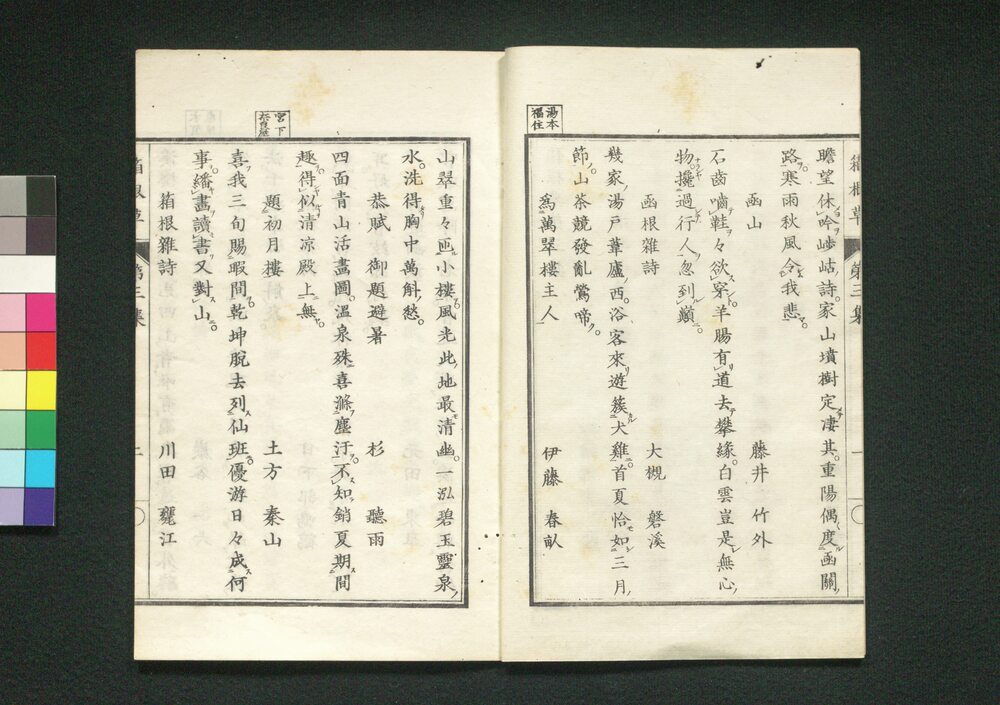 湯本
福住
箱根草 第三集
瞻望休吟㟁岵詩家山墳樹定凄其重陽偶度函關
路寒雨秋風令我悲
函山 藤井 竹外
石齒嚙鞋々欲穿羊腸有道去攀緣白雲豈是無心
物攙過行人忽到巔
函根雜詩 大槻 磐溪
幾家湯戸葦廬西浴客來遊簇犬雞首夏恰如三月
節山茶競發亂鶯啼
爲萬翠樓主人 伊藤 春畝
宮下
奈良屋
山翠重々匝小樓風光此地最清幽一泓碧玉靈泉
水洗得胸中萬斛愁
恭賦 御題避暑 杉 聽雨
四面青山活畫圖溫泉殊喜滌塵汙不知銷夏期間
趣得似清凉殿上無
題初月樓 土方 秦山
喜我三旬賜暇間乾坤脱去列仙班優游日々成何
事繙畫讀書又對山
箱根雜詩 川田 甕江
箱根草 第三集 二